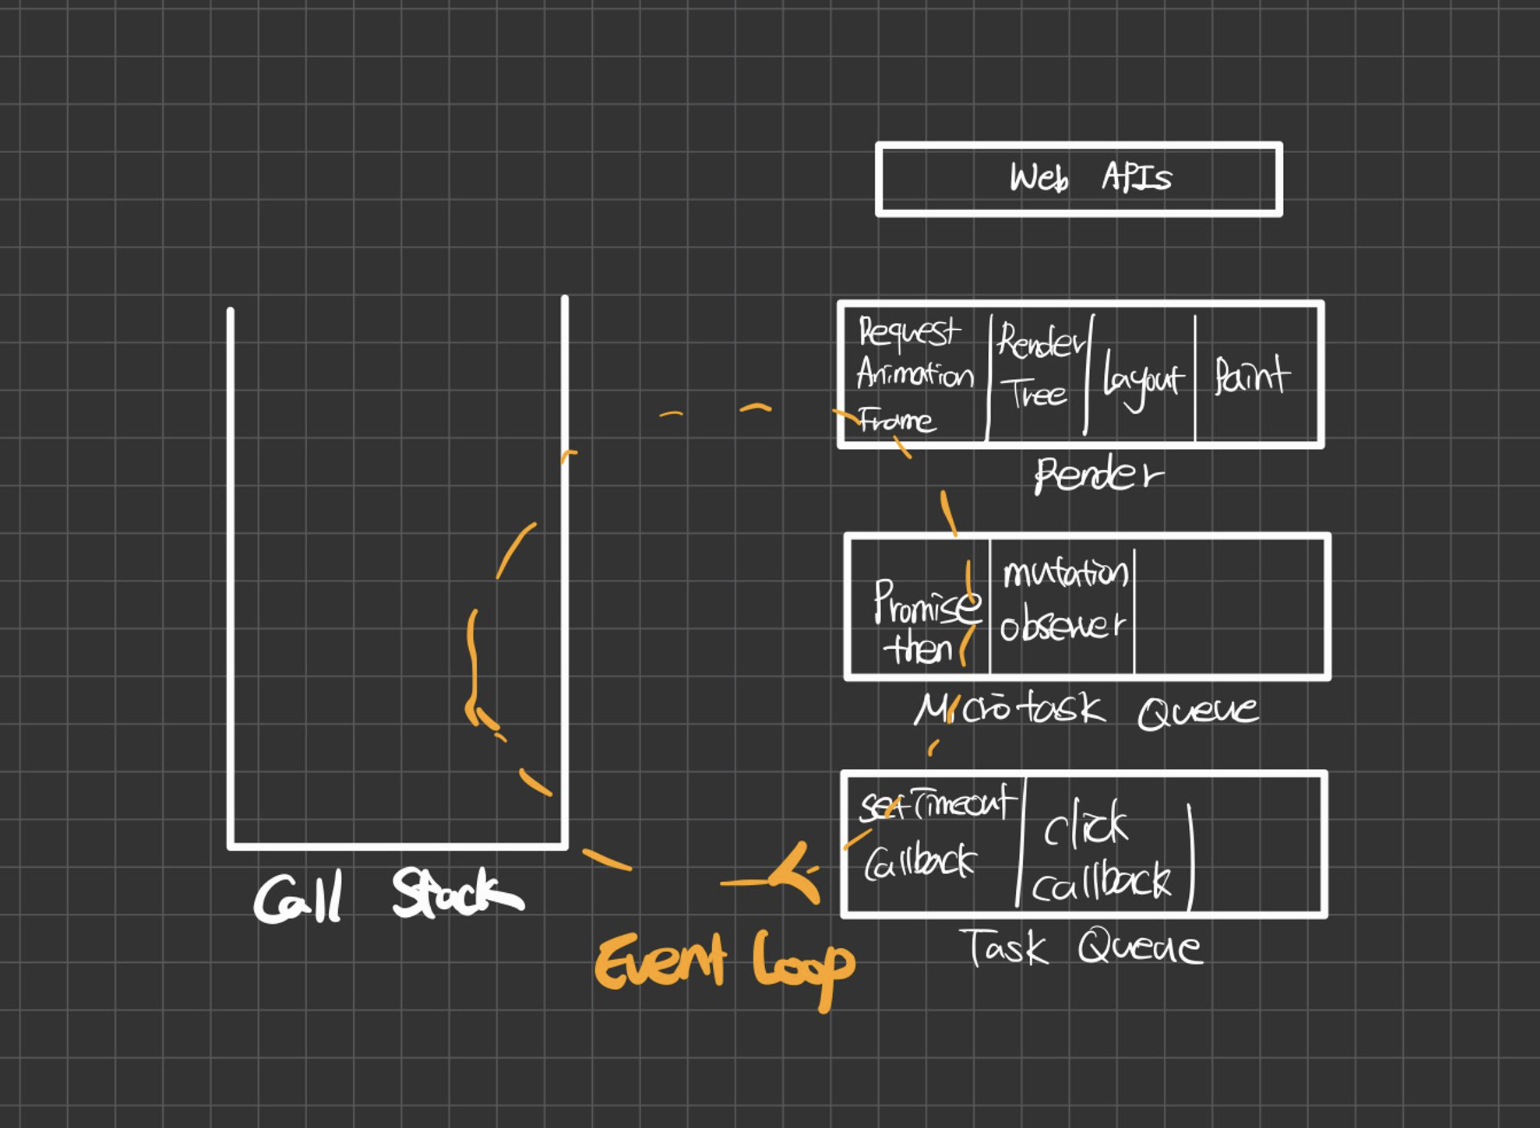 Web APIs
Request
Animation
Frame
Render
Tree
Layout
Paint
Render
Promise
then
mutation
observer
Microtask Queue
setTimeout
Callback
click
callback
Task Queue
Call Stack
Event Loop